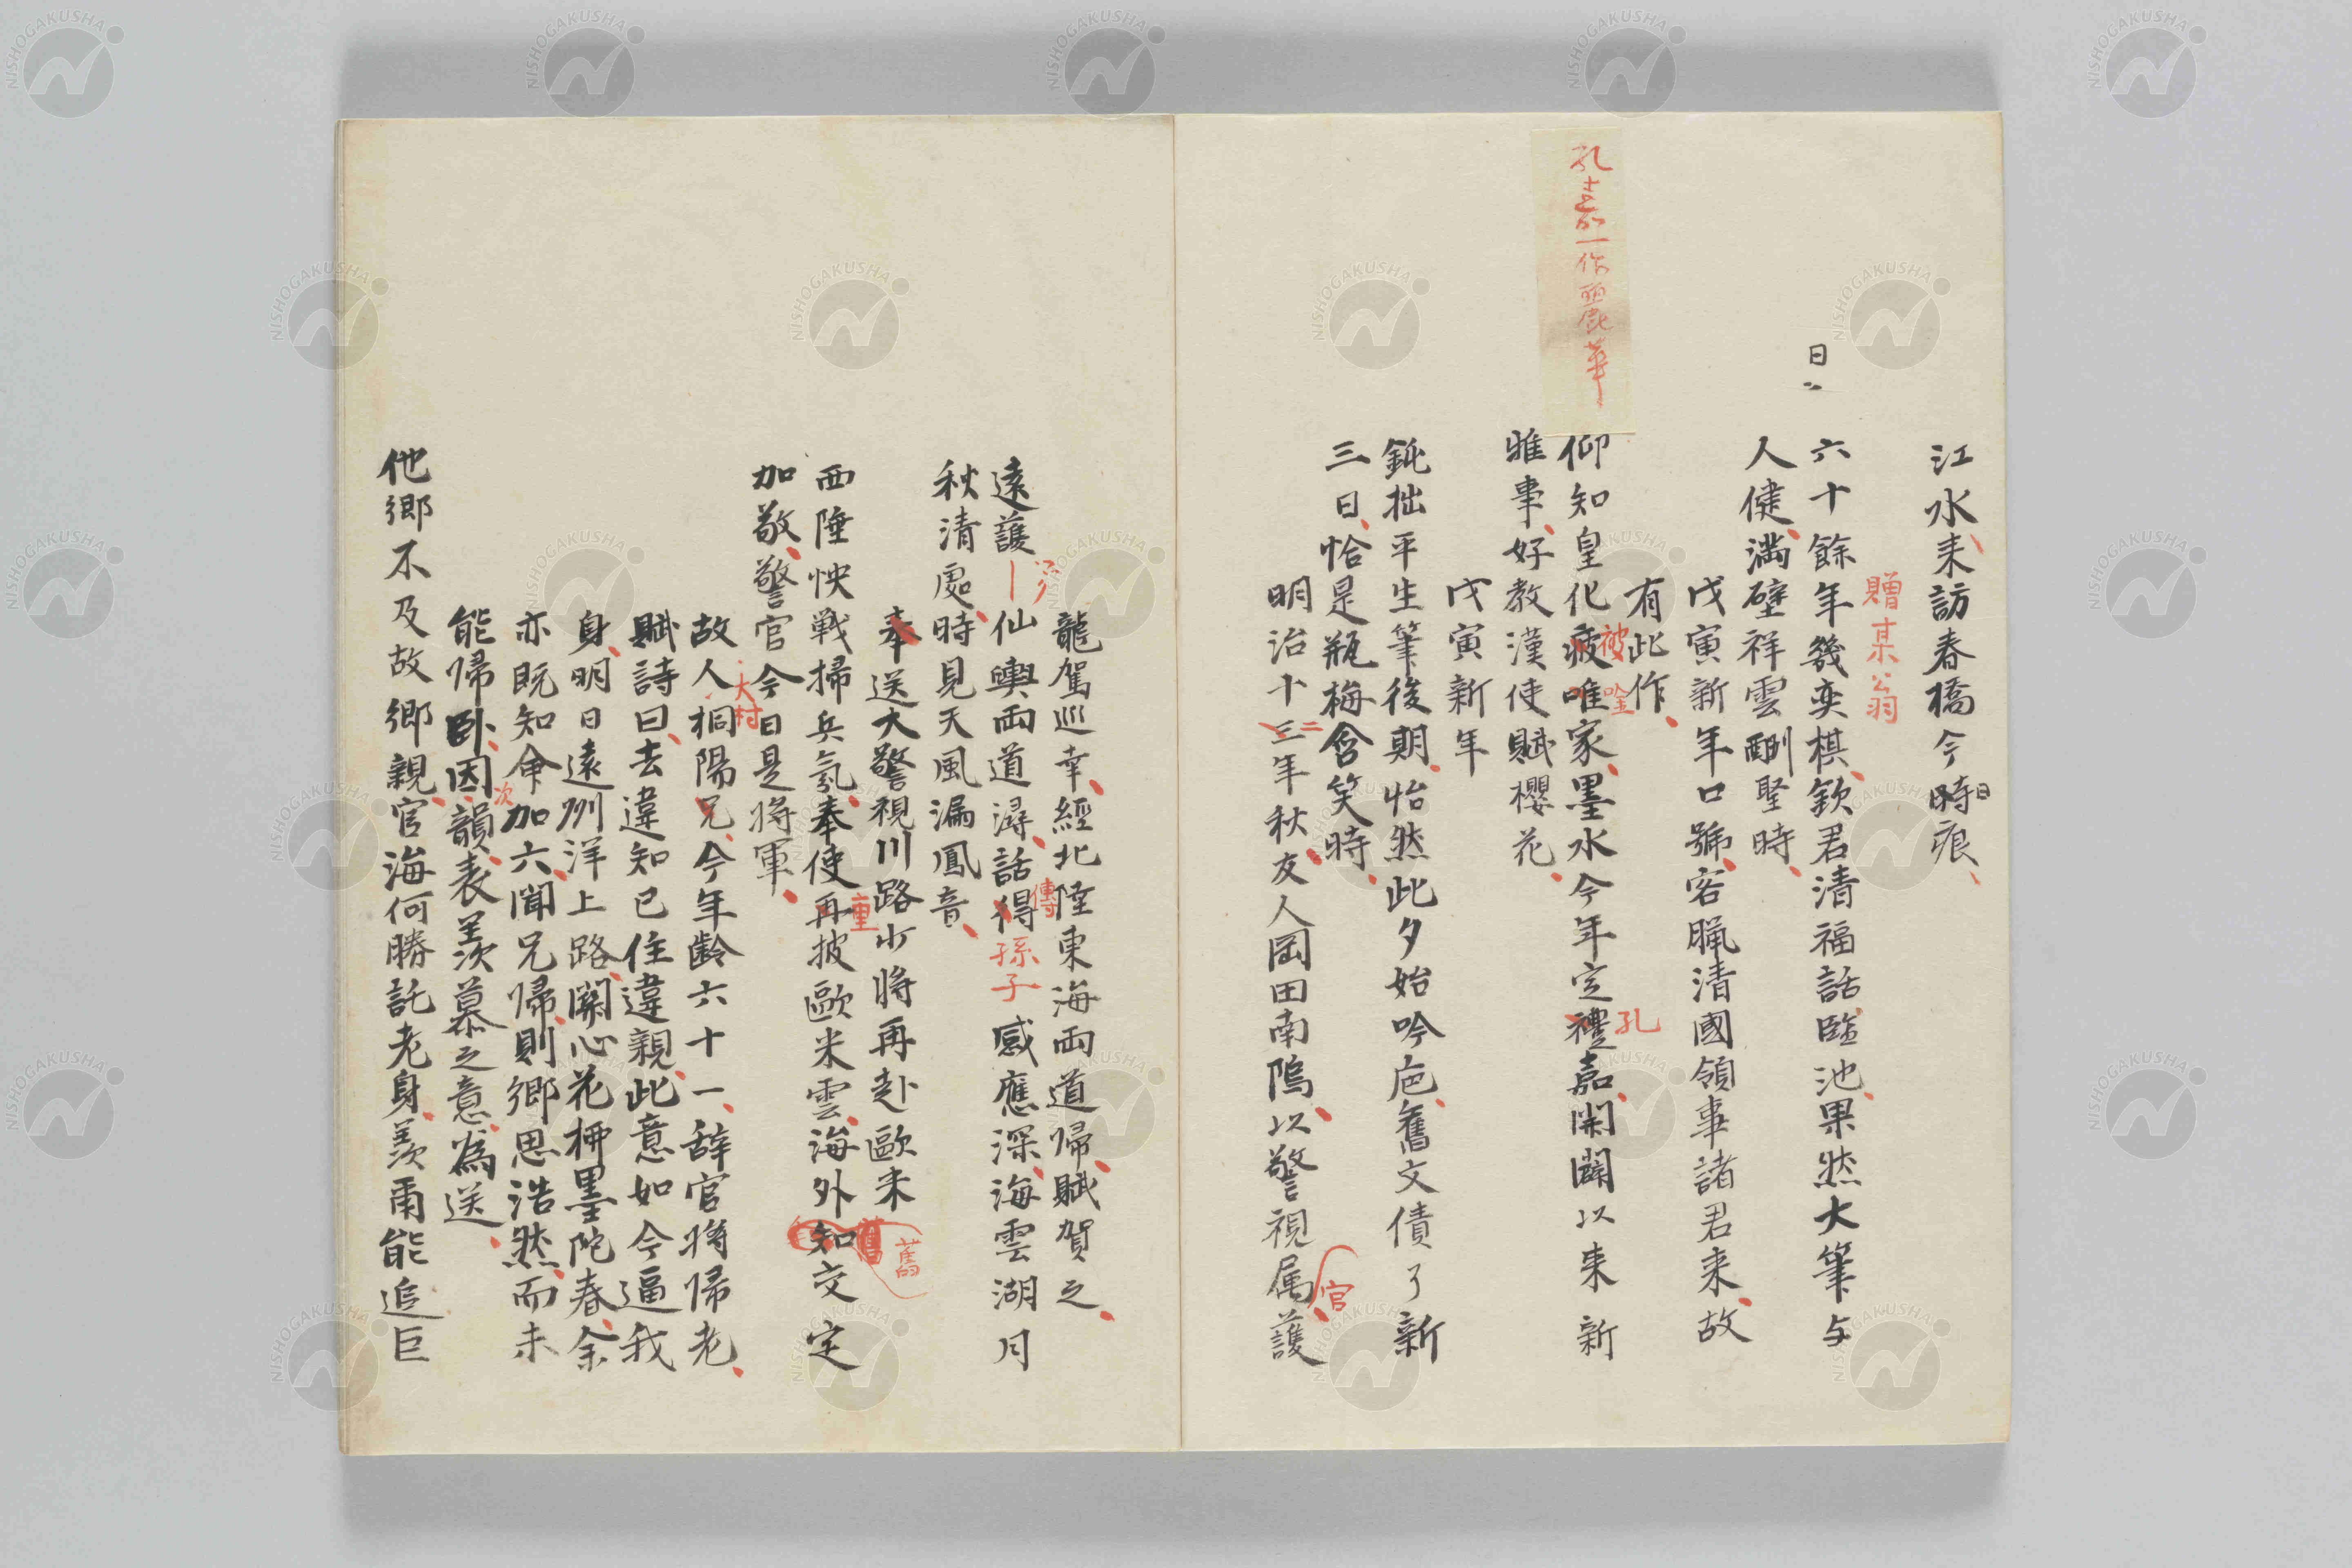 江水来訪春橋今時痕
日
贈某公翁
六十餘年幾奕棋欽君清福話臨池果然大筆与
人健満壁祥雲酬堅時
戊寅新年口號客臘清國領事諸君来故
有此作
孔嘉一作麗華
仰知皇化疲唯家墨水今年定禮嘉開闢以来新
被
唫
孔
雅事好教漢使賦櫻花
戊寅新年
鈍拙平生筆後期怡然此夕始吟巵舊文債了新
三日恰是瓶梅含笑時
明治十三年秋友人岡田南隝以警視属護
二
官
龍駕巡幸經北陸東海両道帰賦賀之
遠護仙輿両道潯話得孫子感應深海雲湖月
傳
秋清處時見天風漏鳳音
奉送大警視川路少将再赴歐来
西陲怏戦掃兵氛奉使再披歐米雲海外知交定
重
舊
加敬警官今日是将軍
故人桐陽兄今年齢六十一辞官将帰老
大村
賦詩曰去違知已住違親此意如今逼我
身明日遠州洋上路關心花柳墨陀春余
亦既知命加六聞兄帰則郷思浩然而未
能帰卧因韻表羨慕之意為送
次
他郷不及故郷親官海何勝託老身羨甫能追巨